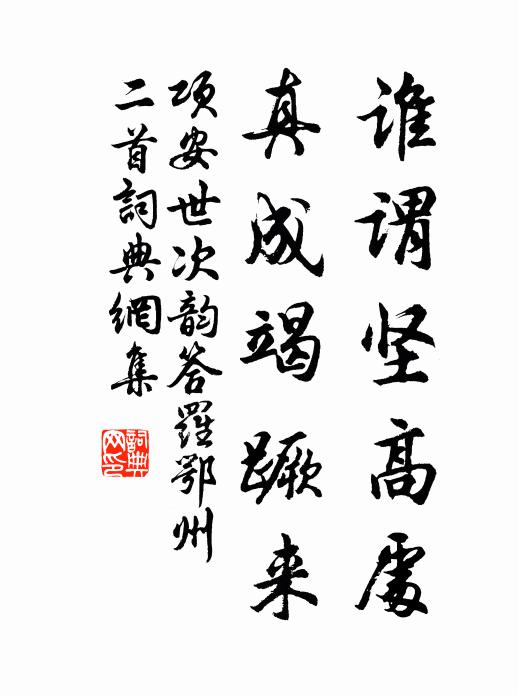 谁谓坚高處
真成竭蹶来
项安世次韵答羅鄂州
二首詞典網集
詞典
网印